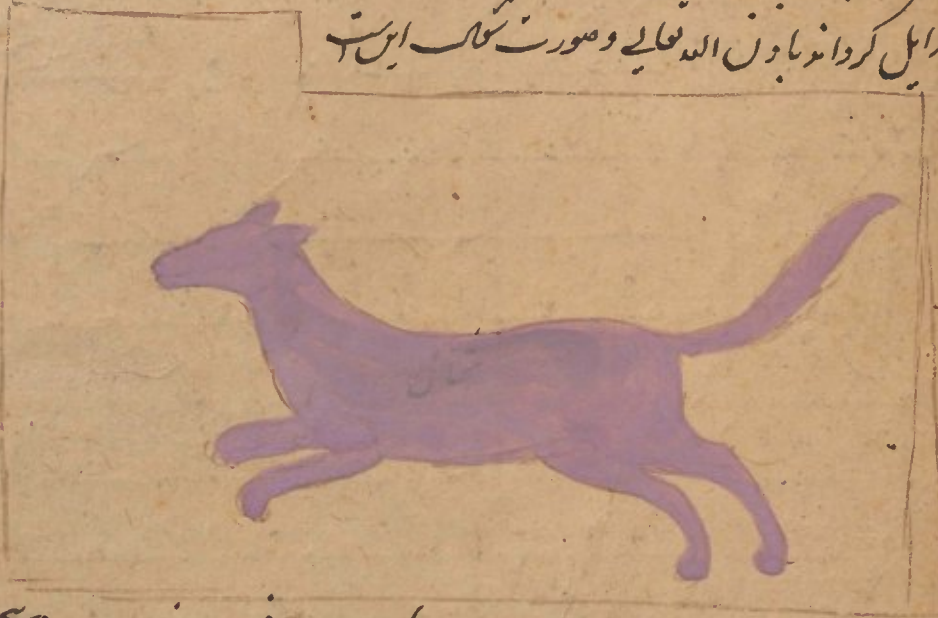 زایل کرداند باذن الله تعالی و صورت شغال این است
شغال